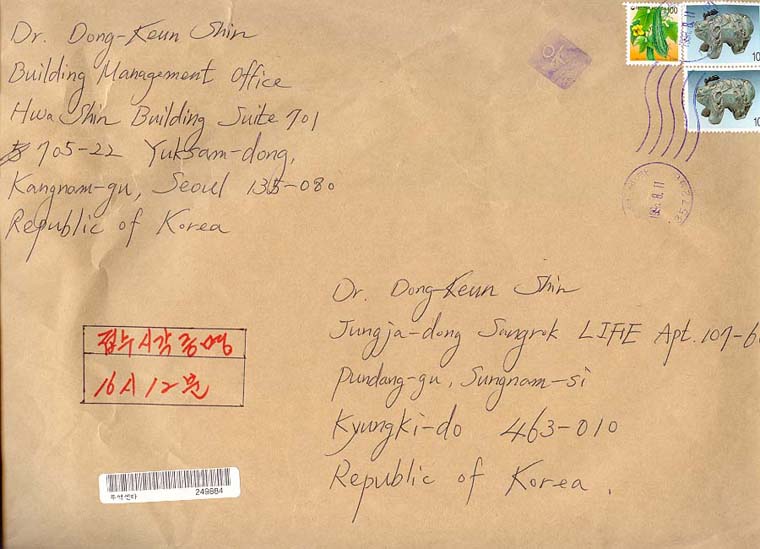 Dr. Dong-Keun Shin
Building Management Office
Hwa Shin Building Suite 701
705-22 Yuksam-dong,
Kangnam-gu, Seoul 135-080
Republic of Korea
OK
100
10
10
Dr. Dong-Keun Shin
Jungja-dong Sangrok LIFE Apt. 107-6
Pundang-gu, Sungnam-si
Kyungki-do 463-010
Republic of Korea.
접수시각증명
16시 12분
우석센타
249884